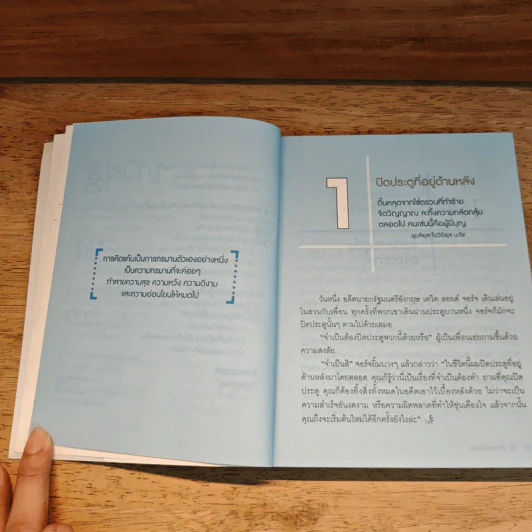 การคิดแค้นเป็นการทรมานตัวเองอย่างหนึ่ง
เป็นความทรมานที่จะค่อยๆ
ทำลายความสุข ความหวัง ความดีงาม
และความอ่อนโยนให้หมดไป
1
ปิดประตูที่อยู่ด้านหลัง
ดิ้นหลุดจากโซ่ตรวนที่ทำร้าย
จิตวิญญาณ ละทิ้งความเกลียดกลุ้ม
ตลอดไป คนเช่นนี้คือผู้มีบุญ
พูบลิอุส โอวิดิอุส นาโซ
วันหนึ่ง อดีตนายกรัฐมนตรีอังกฤษ เดวิด ลอยด์ จอร์จ เดินเล่นอยู่
ในสวนกับเพื่อน ทุกครั้งที่พวกเขาเดินผ่านประตูบานหนึ่ง จอร์จก็มักจะ
ปิดประตูนั้นๆ ตามไปด้วยเสมอ
“จำเป็นต้องปิดประตูพวกนี้ด้วยหรือ” ผู้เป็นเพื่อนเอ่ยถามขึ้นด้วย
ความสงสัย
“จำเป็นสิ” จอร์จยิ้มบางๆ แล้วกล่าวว่า “ในชีวิตนี้ผมปิดประตูที่อยู่
ด้านหลังมาโดยตลอด คุณก็รู้ว่านี่เป็นเรื่องที่จำเป็นต้องทำ ยามที่คุณปิด
ประตู คุณก็ต้องทิ้งสิ่งทั้งหมดในอดีตเอาไว้เบื้องหลังด้วย ไม่ว่าจะเป็น
ความสำเร็จอันงดงาม หรือความผิดพลาดที่ทำให้ขุ่นเคืองใจ แล้วจากนั้น
คุณถึงจะเริ่มต้นใหม่ได้อีกครั้งยังไงล่ะ”